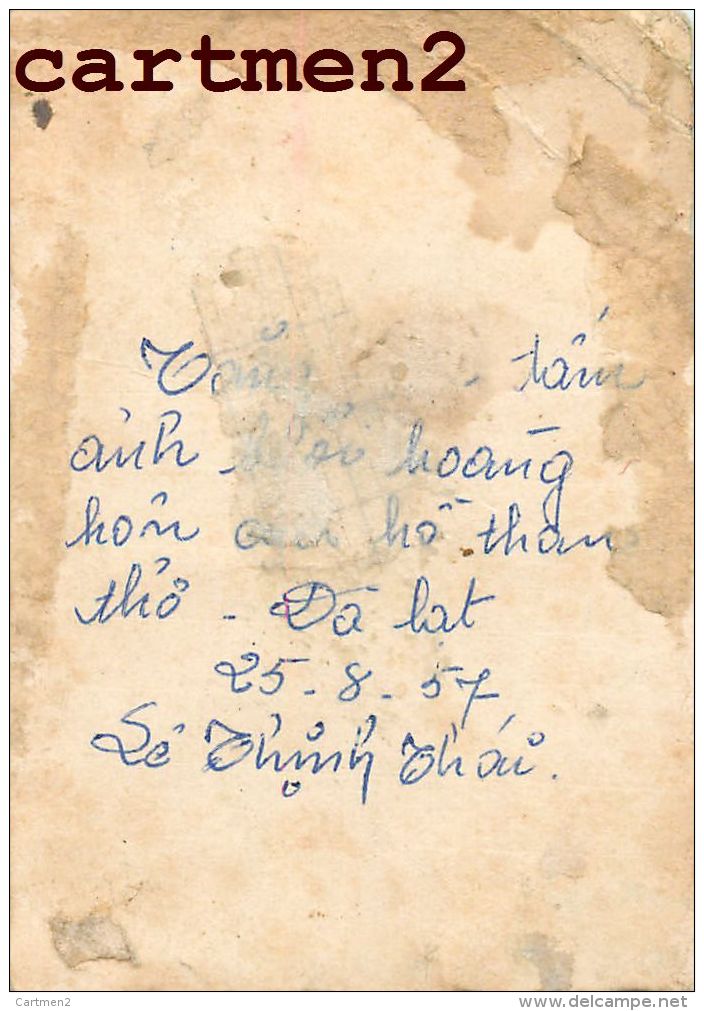 cartmen2
Tặng tấm
ảnh hoàng
hôn hồ than
thở - Đà lạt
25-8-57
Lê Thịnh Thái.
Cartmen2
delcampe.net